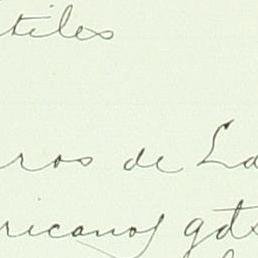 tiles
ros de La
ricanos gds